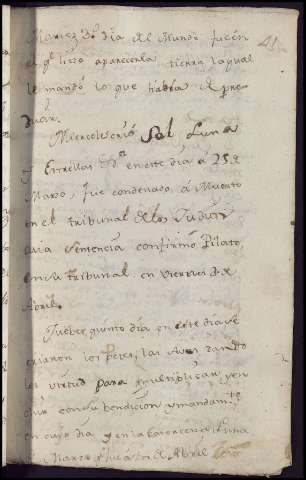 Martes 3º dia del Mundo fue en
el ql hizo aparecer la tierra la qual
le mandó lo que habia de pro
ducir.
41
Miercoles crió Sol, Luna
y Estrellas en este dia á 25 de
Marzo, fue condenado á Muerte
en el tribunal de los Judios
cuia sentencia confirmó Pilato,
en su tribunal en viernes 3 de
Abril.
Jueves, quinto dia en este dia se
criaron los Peces, las Aves dando
les virtud para multiplicar, y en
con su bendicion y mandamto
en cuyo dia y en la Luna
de Marzo de Abril